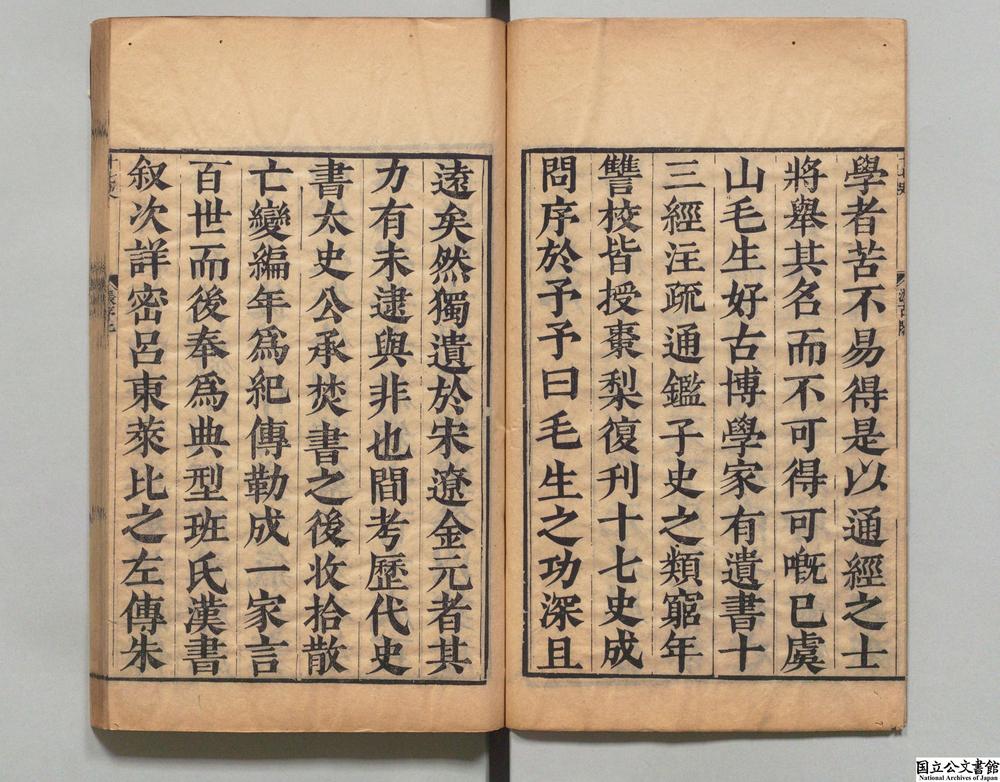 學者苦不易得是以通經之士
將舉其名而不可得可嘅已虞
山毛生好古博學家有遺書十
三經注疏通鑑子史之類窮年
讐校皆授棗梨復刊十七史成
問序於予予曰毛生之功深且
遠矣然獨遺於宋遼金元者其
力有未逮與非也間考歷代史
書太史公承焚書之後收拾散
亡變編年爲紀傳勒成一家言
百世而後奉爲典型班氏漢書
叙次詳密呂東萊比之左傳朱
国立公文書館
National Archives of Japan